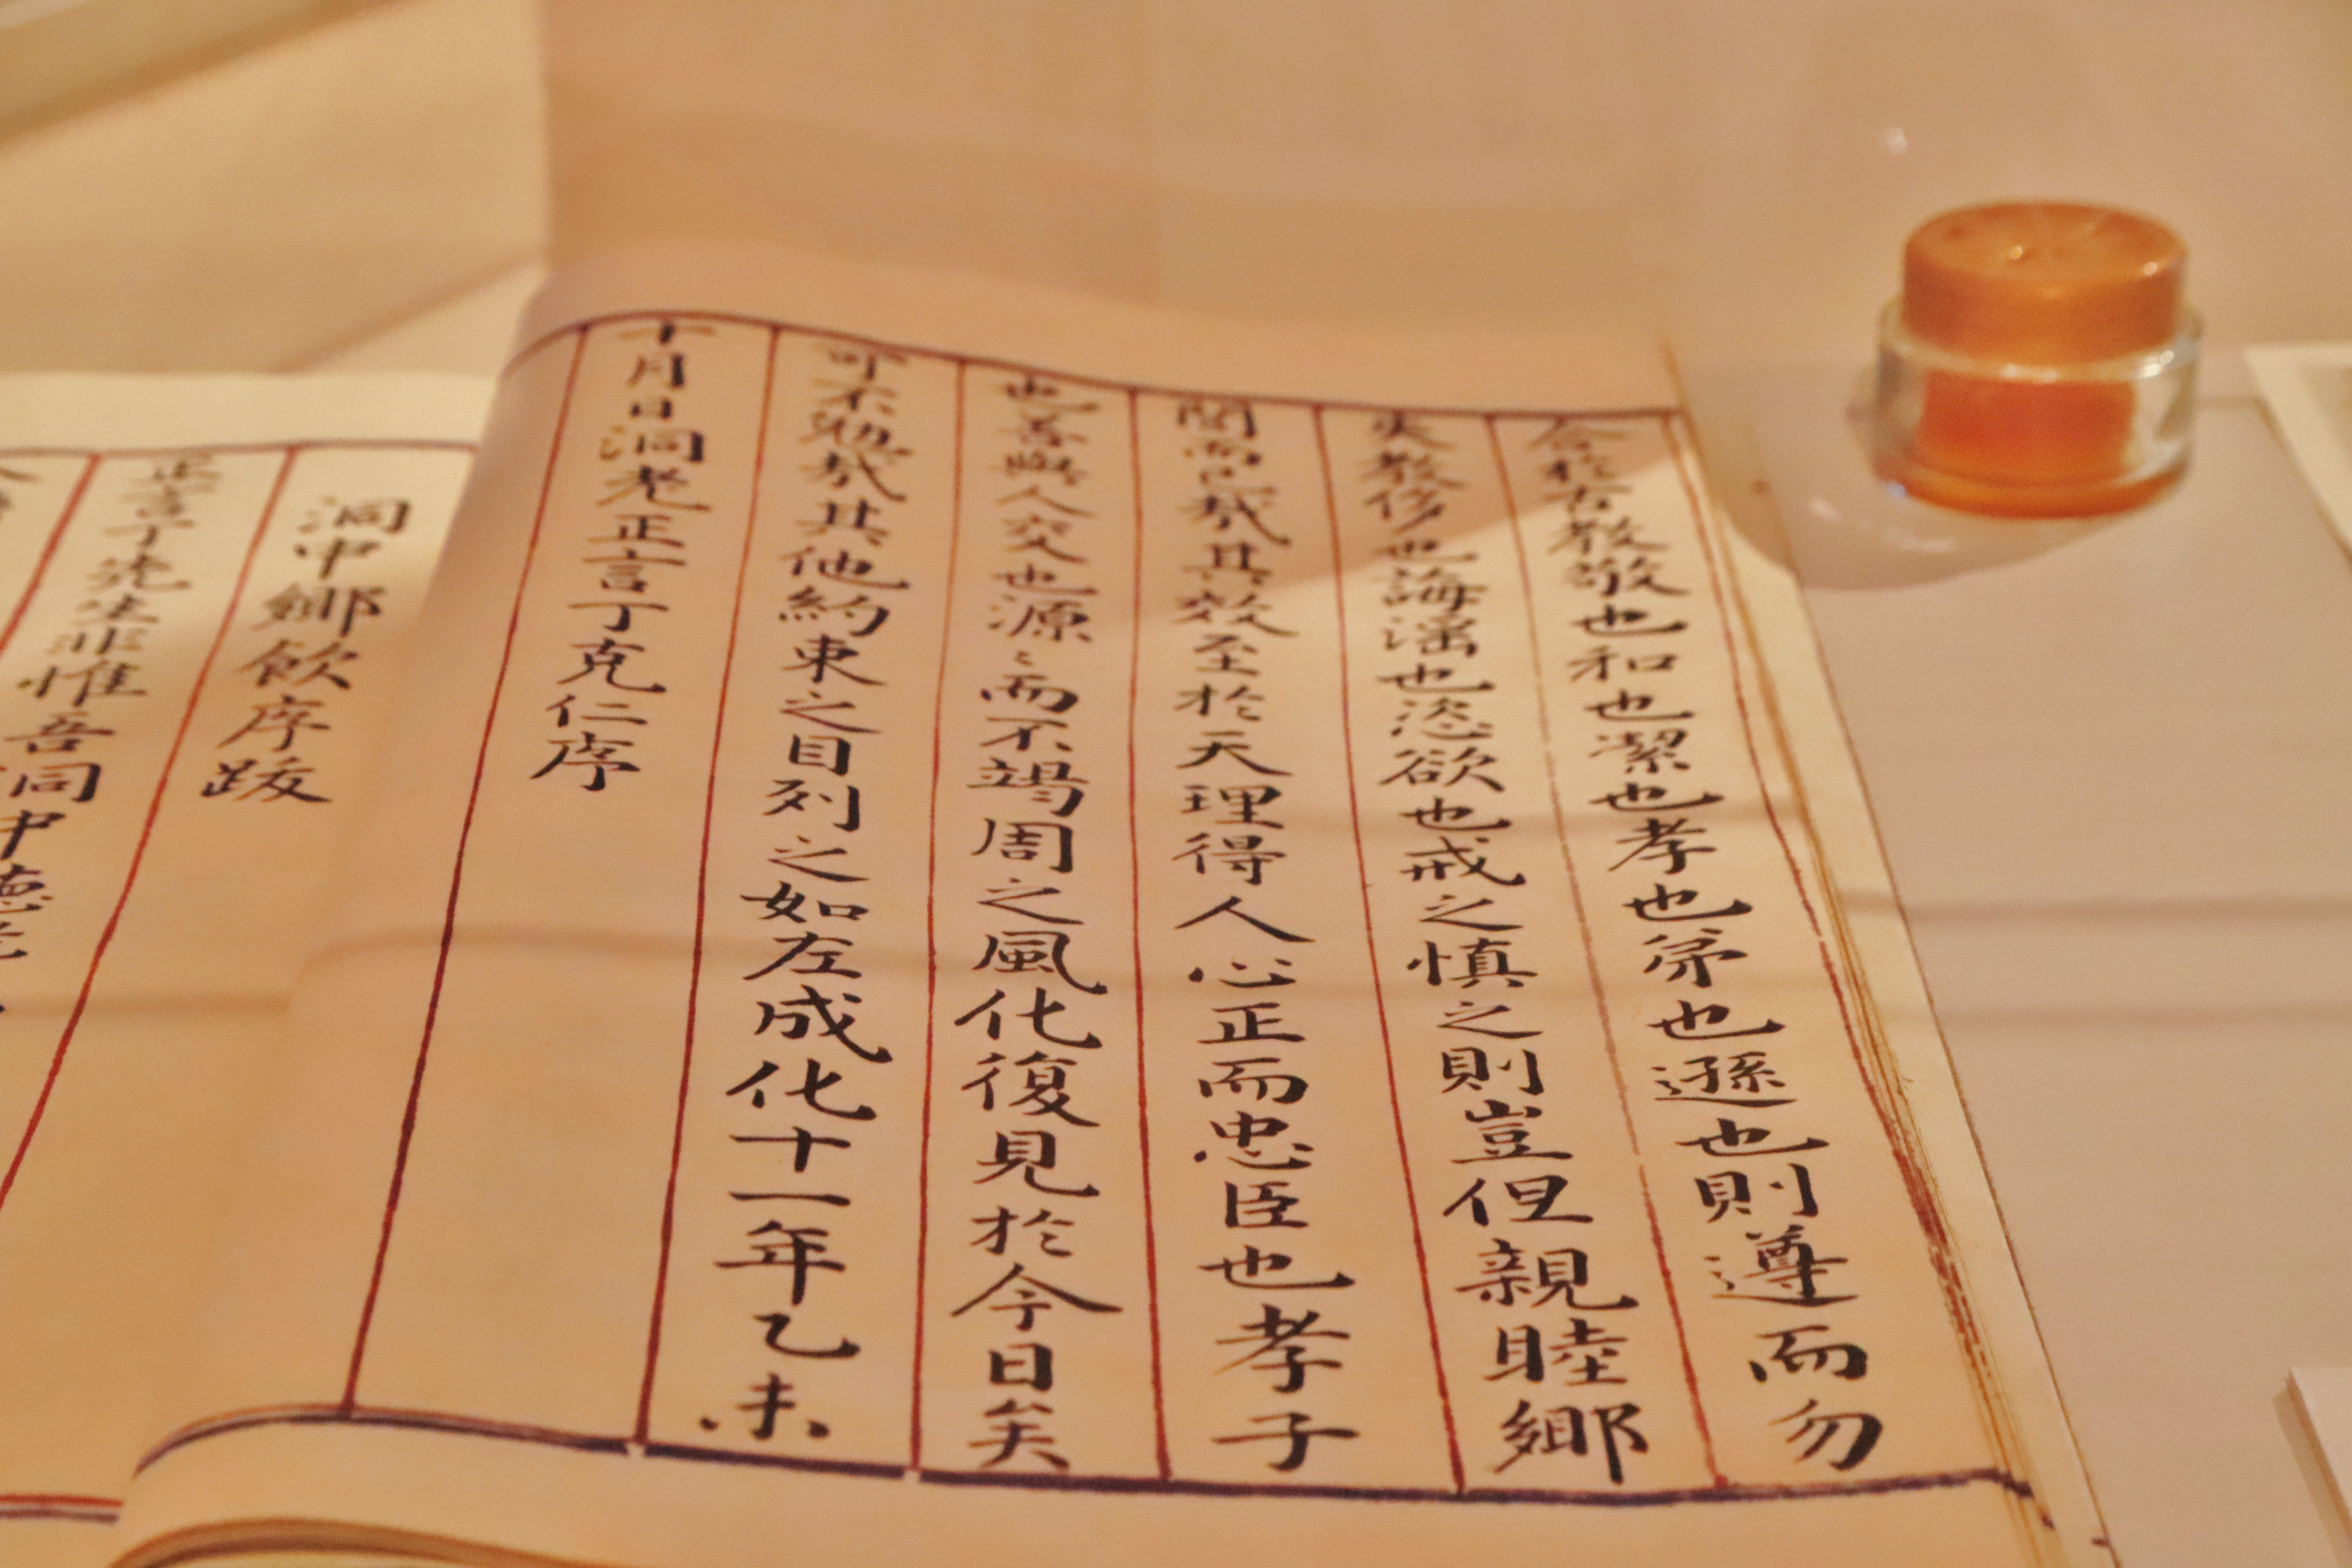 合於古教敬也和也潔也孝也弟也遜也則遵而勿
失教侈也誨滛也恣欲也戒之慎之則豈但親睦鄉
閭而已哉其效至於天理得人心正而忠臣也孝子
也善與人交也源〻而不竭周之風化復見於今日矣
可不勉哉其他約束之目列之如左成化十一年乙未
十月日洞老正言丁克仁序
洞中鄉飲序跋
正言丁先生非惟吾洞中德